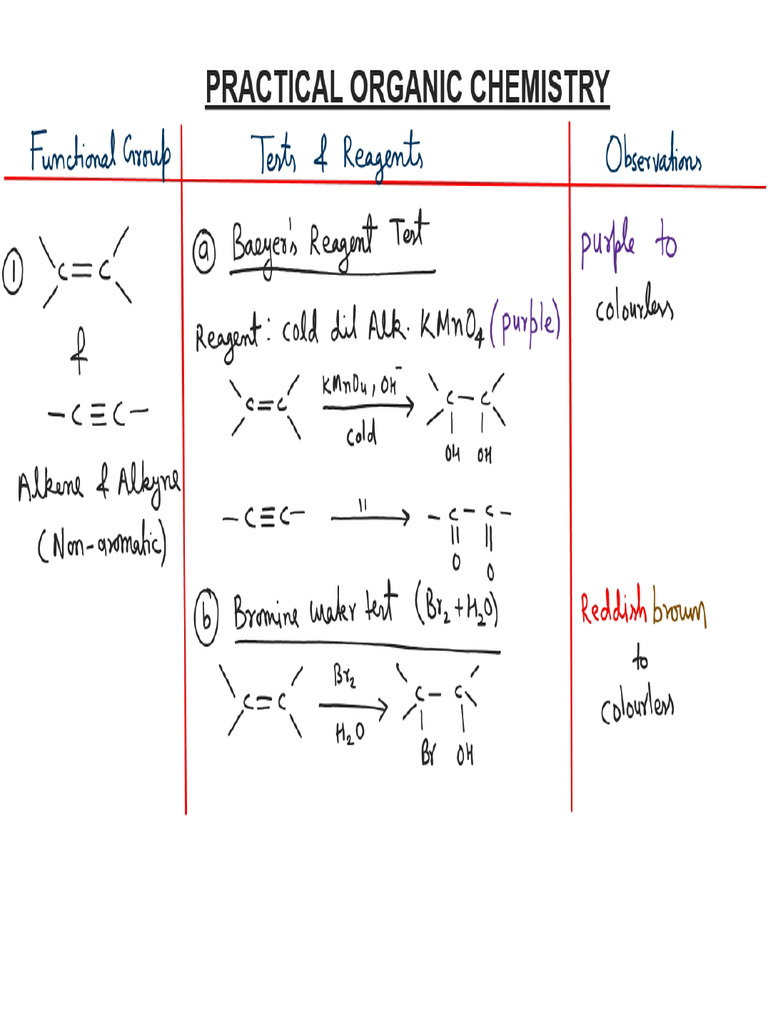 PRACTICAL ORGANIC CHEMISTRY
Functional Group
Tests & Reagents
Observations
① C=C
&
-C≡C-
Alkene & Alkyne
(Non-aromatic)
ⓐ Baeyer's Reagent Test
Reagent: cold dil Alk. KMnO4 (purple)
C=C KMnO4, OH⁻ C-C
cold
OH OH
-C≡C- " -C-C-
O O
ⓑ Bromine water test (Br2+H2O)
C=C Br2 C-C
H2O
Br OH
purple to
colourless
Reddish brown
to
colourless